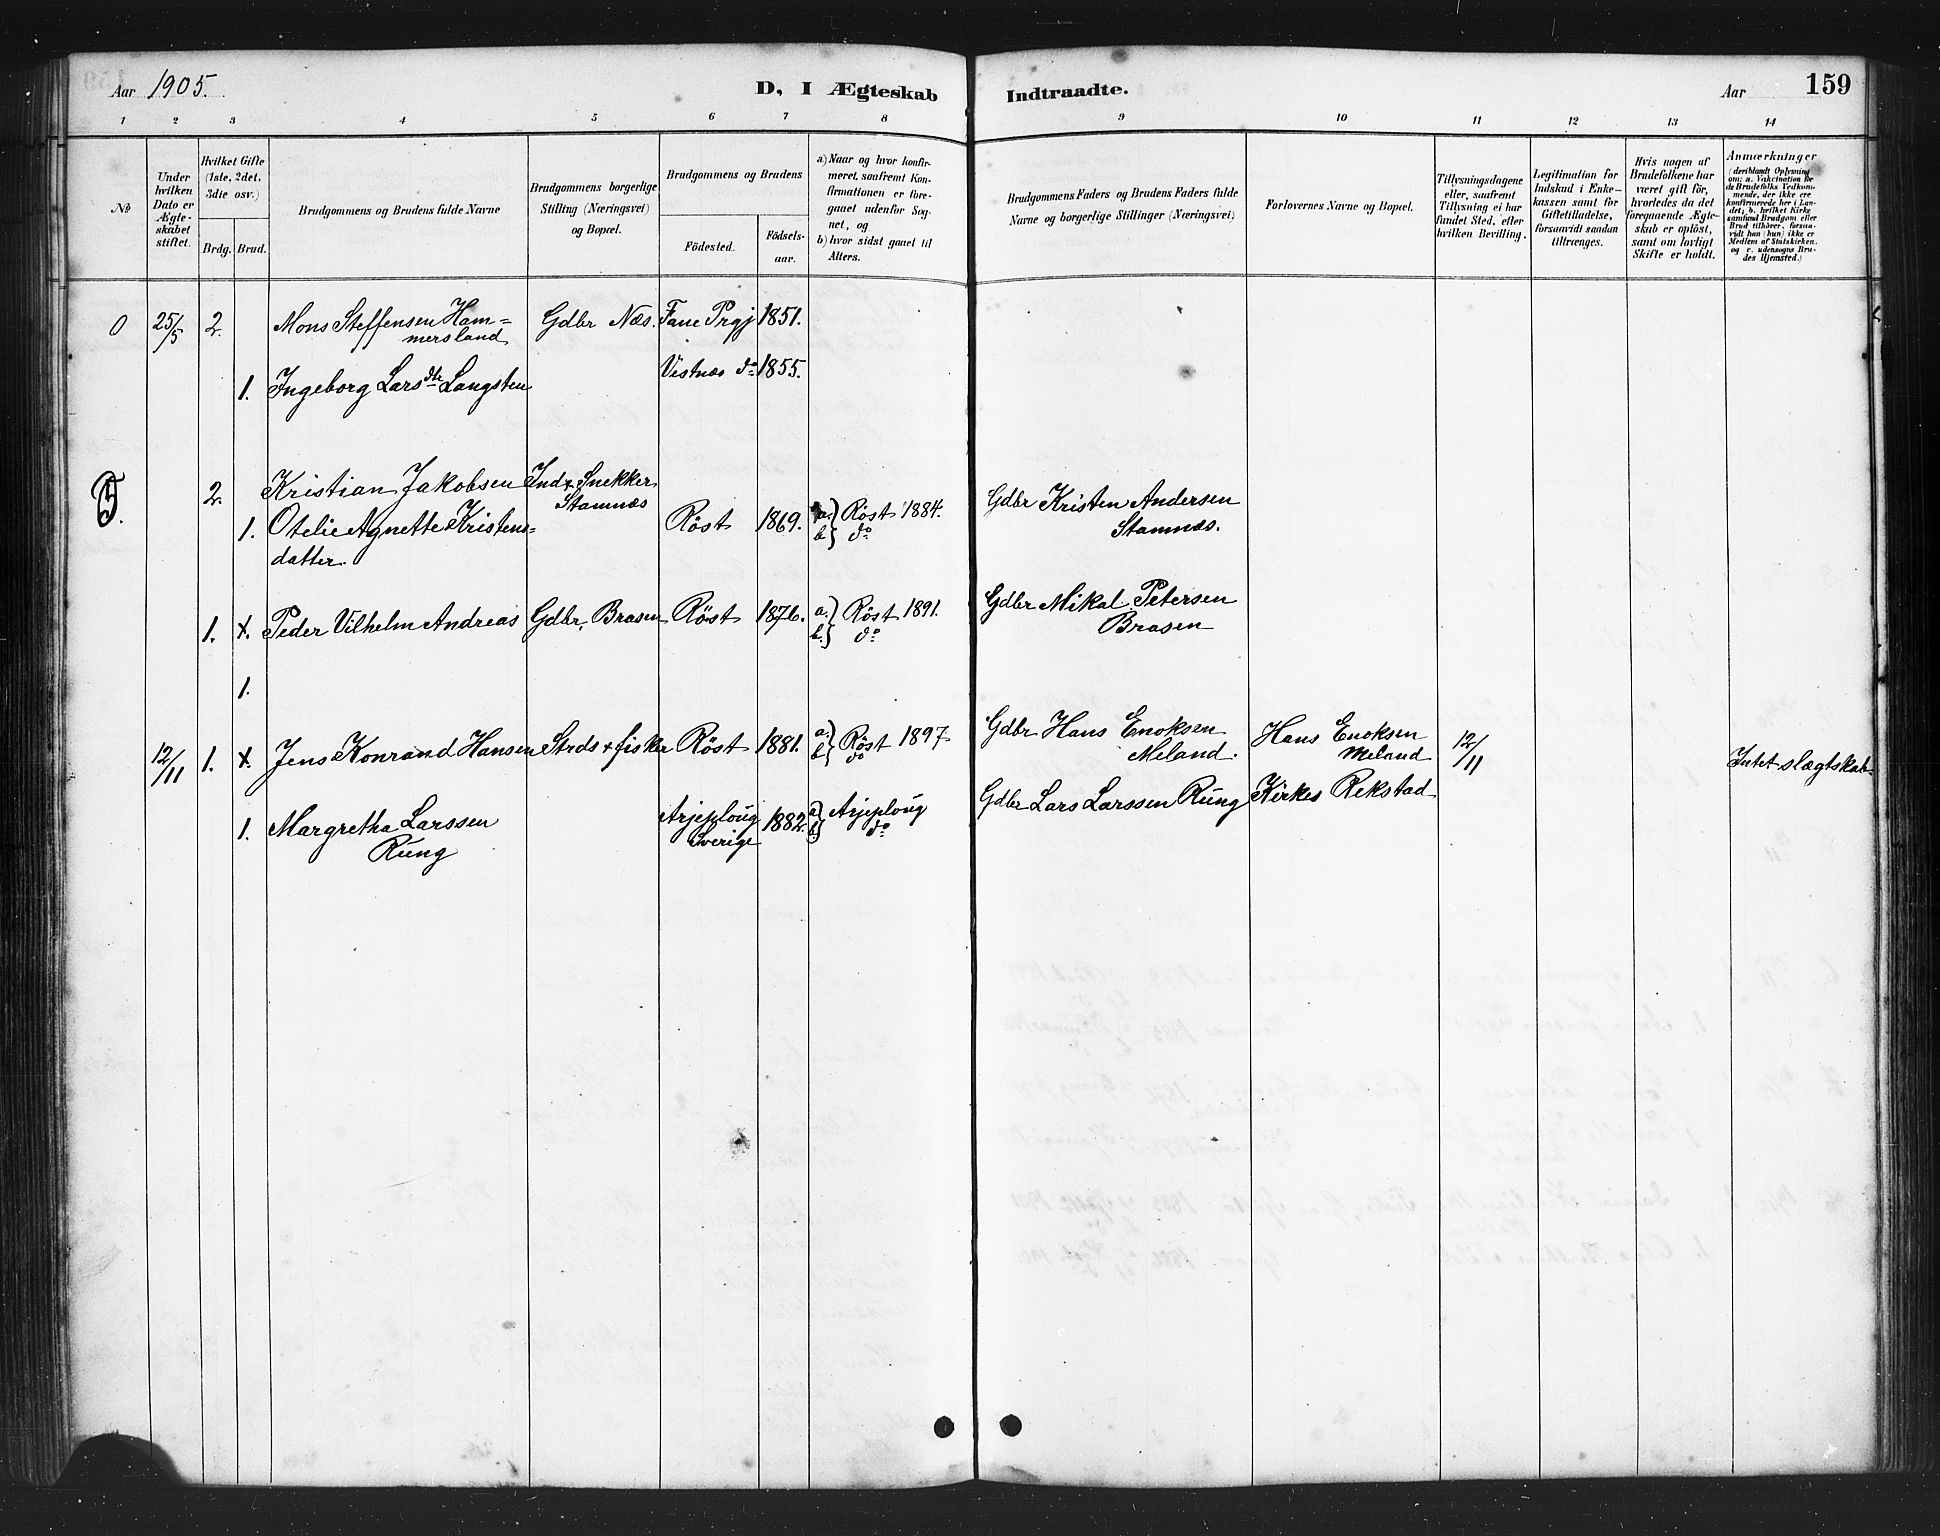 Aar 1905.
D, I Ægteskab Indtraadte.
Aar 159
1 2 3 4 5 6 7 8 9 10 11 12 13 14
No
Under hvilken Dato er Ægte-skabet stiftet.
Hvilket Gifte (1ste, 2det, 3die osv.)
Brdg. Brud.
Brudgommens og Brudens fulde Navne
Brudgommens borgerlige Stilling (Næringsvei) og Bopæl.
Brudgommens og Brudens
Födested.
Födsels-aar.
a) Naar og hvor konfir-meret, saafremt Kon-firmationen er fore-gaaet udenfor Sog-net, og
b) hvor sidst gaaet til Alters.
Brudgommens Faders og Brudens Faders fulde Navne og borgerlige Stillinger (Næringsvei)
Forlovernes Navne og Bopæl.
Tillysningsdagene eller, saafremt Tillysning ei har fundet Sted, efter hvilken Bevilling.
Legitimation for Indskud i Enke-kassen samt for Giftetilladelse, forsaavidt saadan tiltrænges.
Hvis nogen af Brudefolkene har været gift för, hvorledes da det foregaaende Ægte-skab er oplöst, samt om lovligt Skifte er holdt.
Anmærkninger (deriblandt Oplysning om: a. Vakcination for de Brudefolks Vedkom-mende, der ikke ere konfirmerede her i Lan-det; b. hvilket Kirke-samfund Brudgom eller Brud tilhörer, forsaa-vidt han (hun) ikke er Medlem af Statskirken, og c. udensogns Bru-des Hjemsted.)
0 25/5 2. Mons Steffensen Ham= Gdbr Næs. Fane Prgj 1851.
mersland
1. Ingeborg Larsdtr Langsten Vestnæs do 1855.
5. 2. Kristian Jakobsen Ind & Snekker Gdbr Kristen Andersen
Stamnæs Stamnæs.
1. Otelie Agnette Kristens= Röst 1869. a.} Röst 1884.
datter. b} do
1. +. Peder Vilhelm Andreas Gdbr, Brasen Röst 1876. a.} Röst 1891. Gdbr Mikal Petersen
b.} do Brasen
1.
12/11 1. +. Jens Konrand Hansen Strds + fisker Röst 1881. a.} Röst 1897 Gdbr Hans Enoksen Hans Enoksen 12/11 Intet slægtskab
b} do Meland. Meland
1. Margretha Larssen Arjeploug 1882. a} Arjeploug Gdbr Lars Larssen Rung Kirkes Rekstad
Rung Sverige b} do